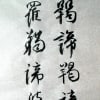 羯諦羯諦
羅羯諦波